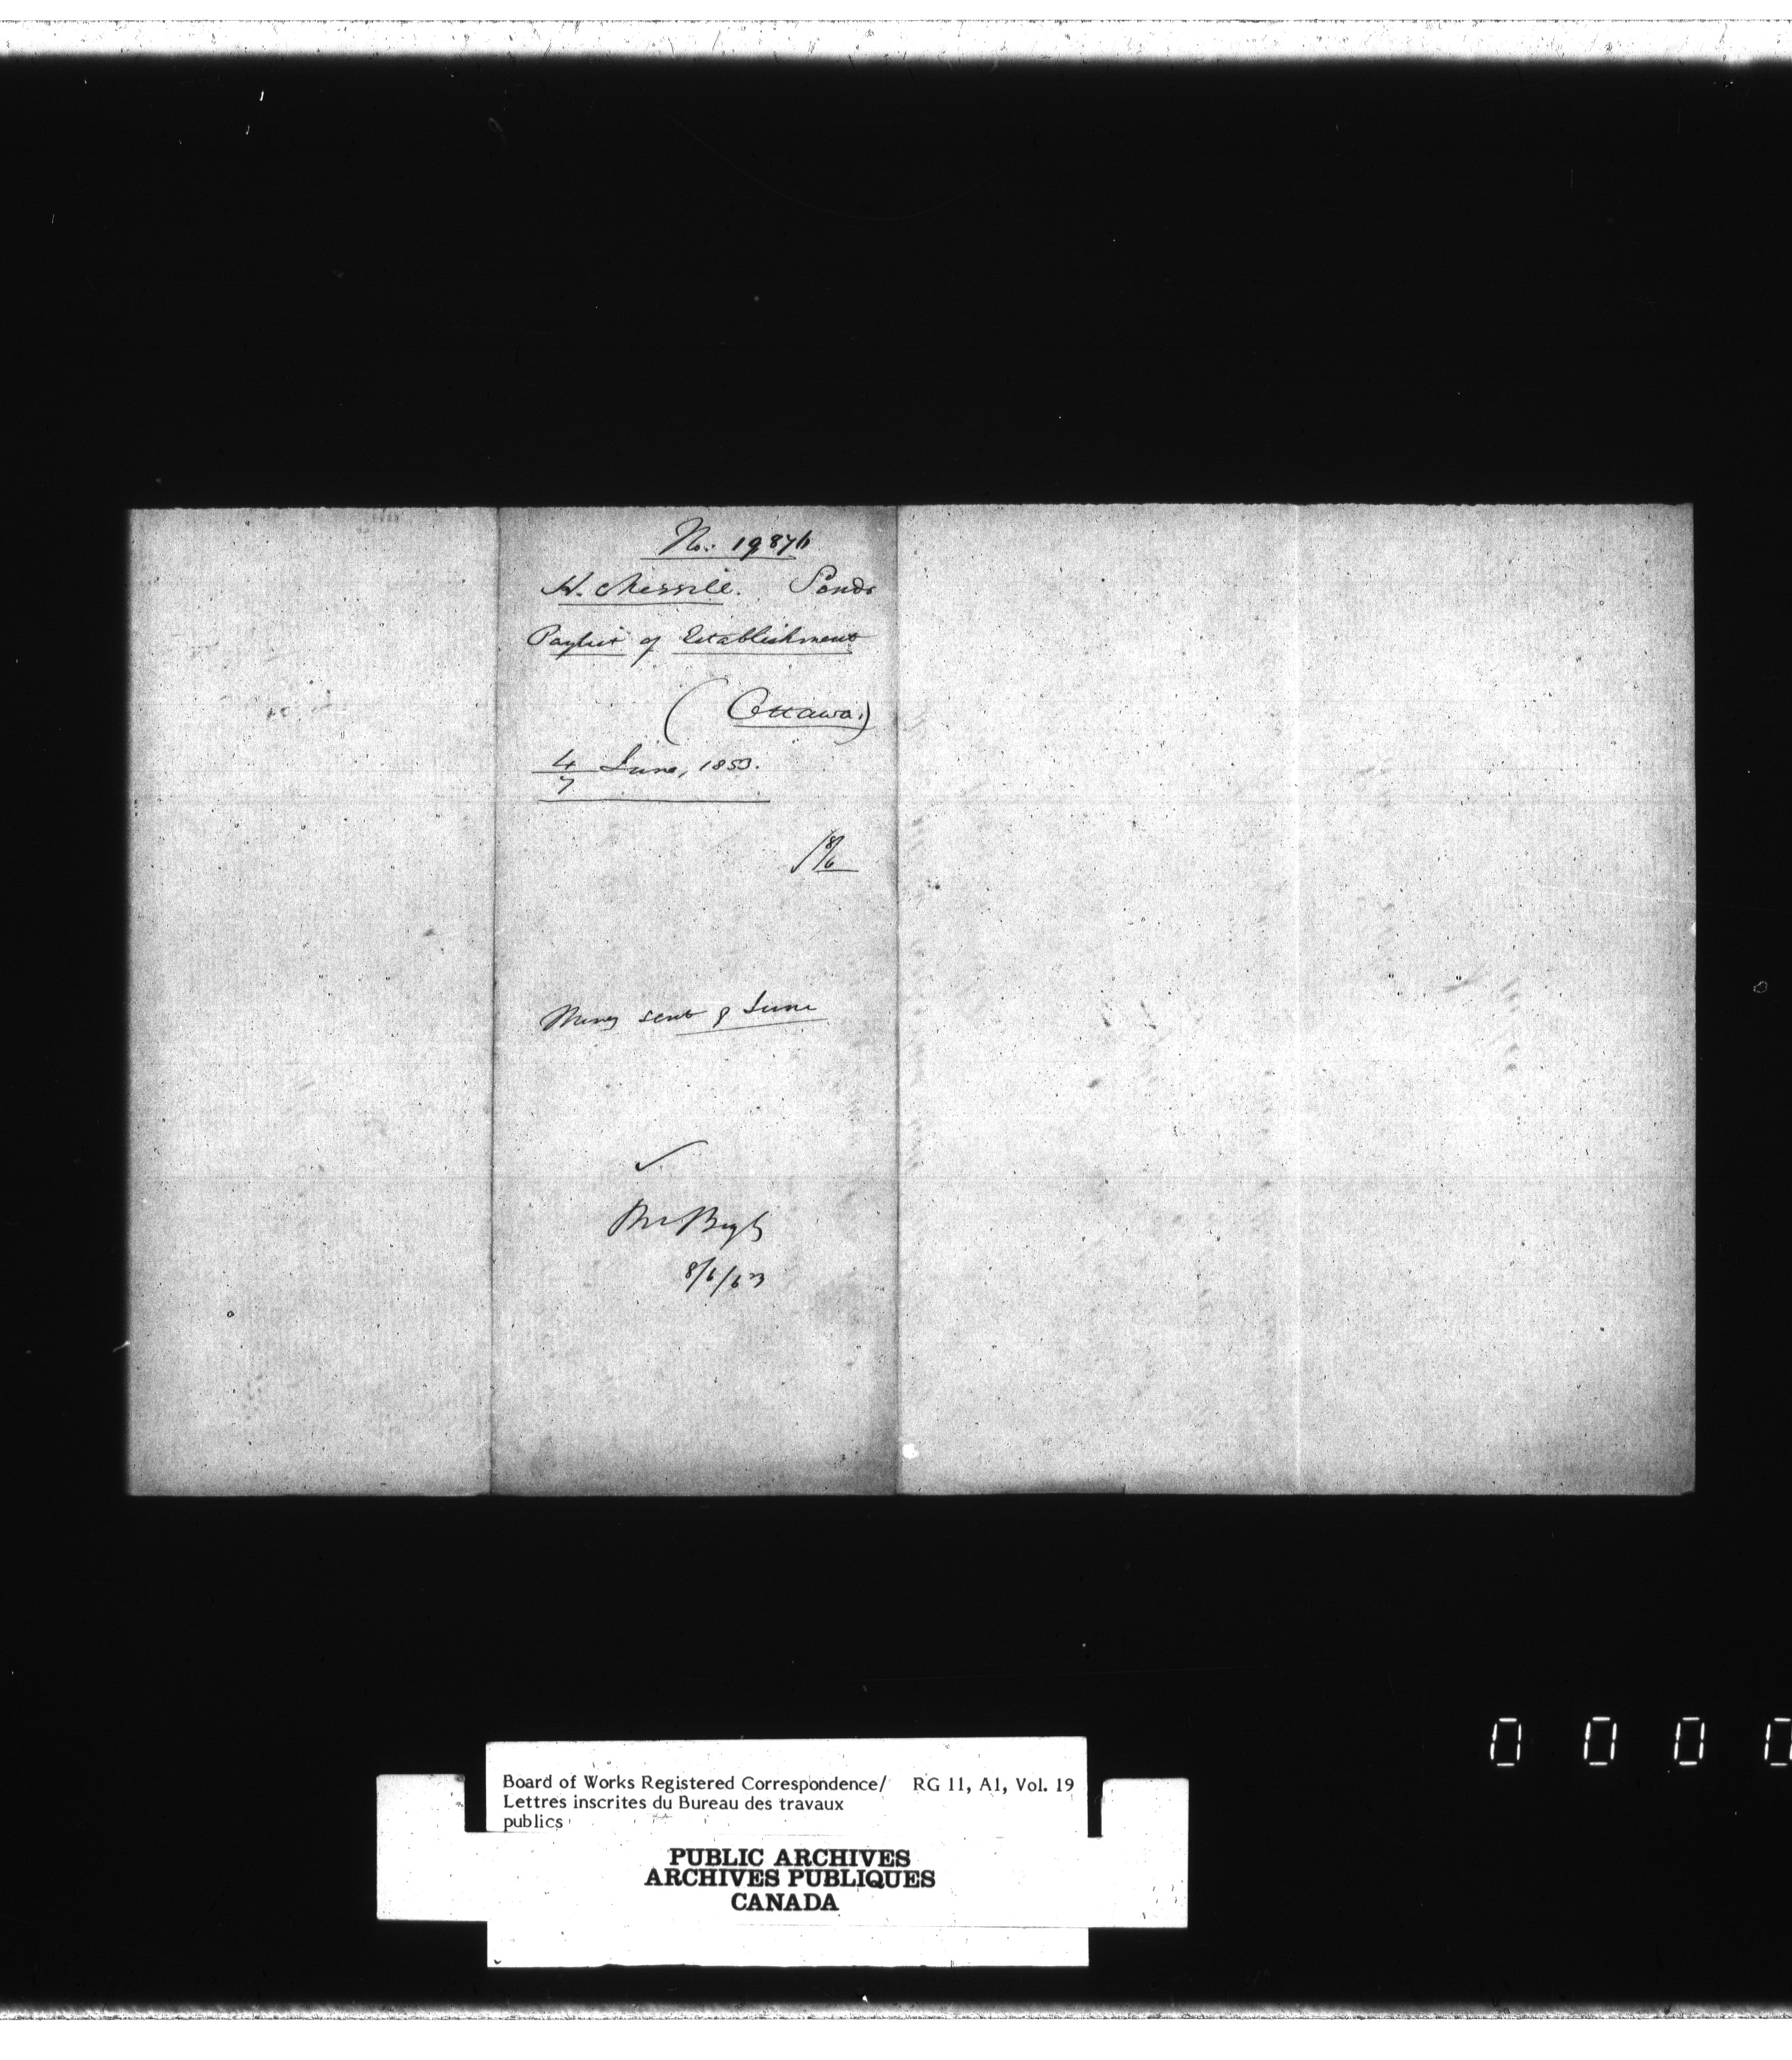 No: 19876
H. Merrill. Sends
Paylist of Establishment
(Ottawa.)
4/7 June, 1853.
Money sent 8 June
8/6/53
0 0 0 0
Board of Works Registered Correspondence/ RG 11, A1, Vol. 19
Lettres inscrites du Bureau des travaux
publics
PUBLIC ARCHIVES
ARCHIVES PUBLIQUES
CANADA